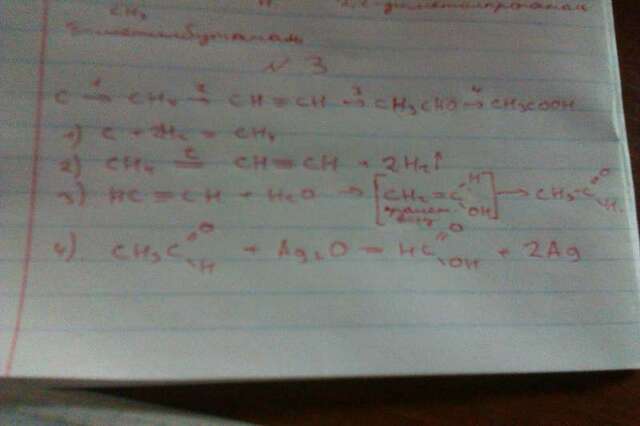 CH₃
2,2-диметилпропаналь
метилбутаналь
№3
C →¹ CH₄ →² CH≡CH →³ CH₃CHO →⁴ CH₃COOH
1) C + 2H₂ = CH₄
2) CH₄ = CH≡CH + 2H₂↑
3) HC≡CH + H₂O → [CH₂=C H OH] → CH₃-C O H
4) CH₃C O H + Ag₂O = HC O OH + 2Ag